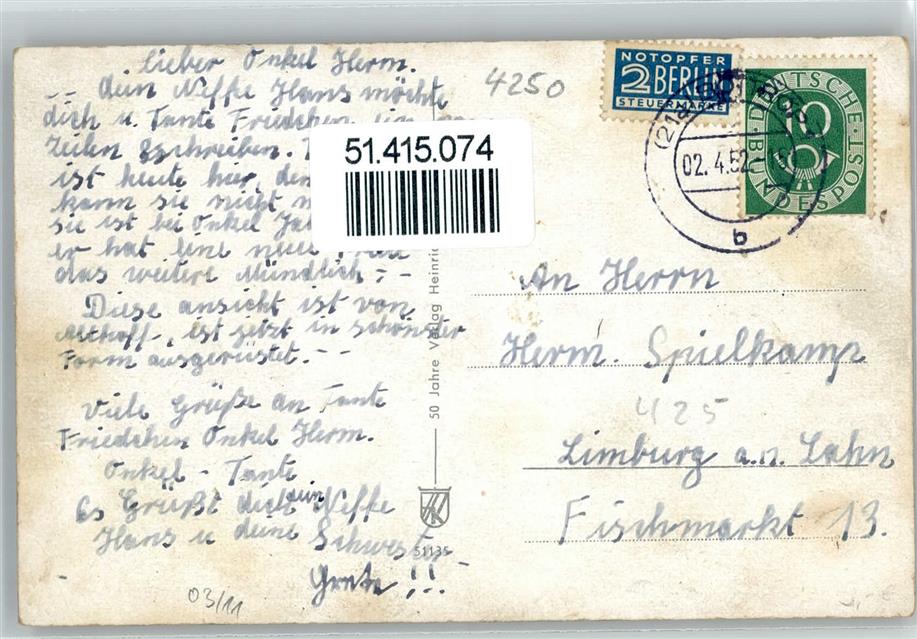 lieber Onkel Herm.
-- dein Neffe Hans möchte
dich u. Tante Friedchen ein
Zeilen schreiben.
ist heute hier, den
kann sie nicht
sie ist bei Onkel
er hat eine neue
das weitere Mündlich --
Diese ansicht ist von
Althoff, ist jetzt in schönster
Form ausgerüstet. --
Viele Grüße an Tante
Friedchen Onkel Herm.
Onkel - Tante
Es Grüßt dich dein Neffe
Hans u deine Schwester
Grete !!
03/11
4250
51.415.074
50 Jahre Verlag Heinric
51135
NOTOPFER
2 BERLIN
STEUERMARKE
DEUTSCHE
BUNDESPOST
10
(21a)
02. 4.52
b
An Herrn
Herm. Spielkamp
425
Limburg a.n. Lahn
Fischmarkt 13.